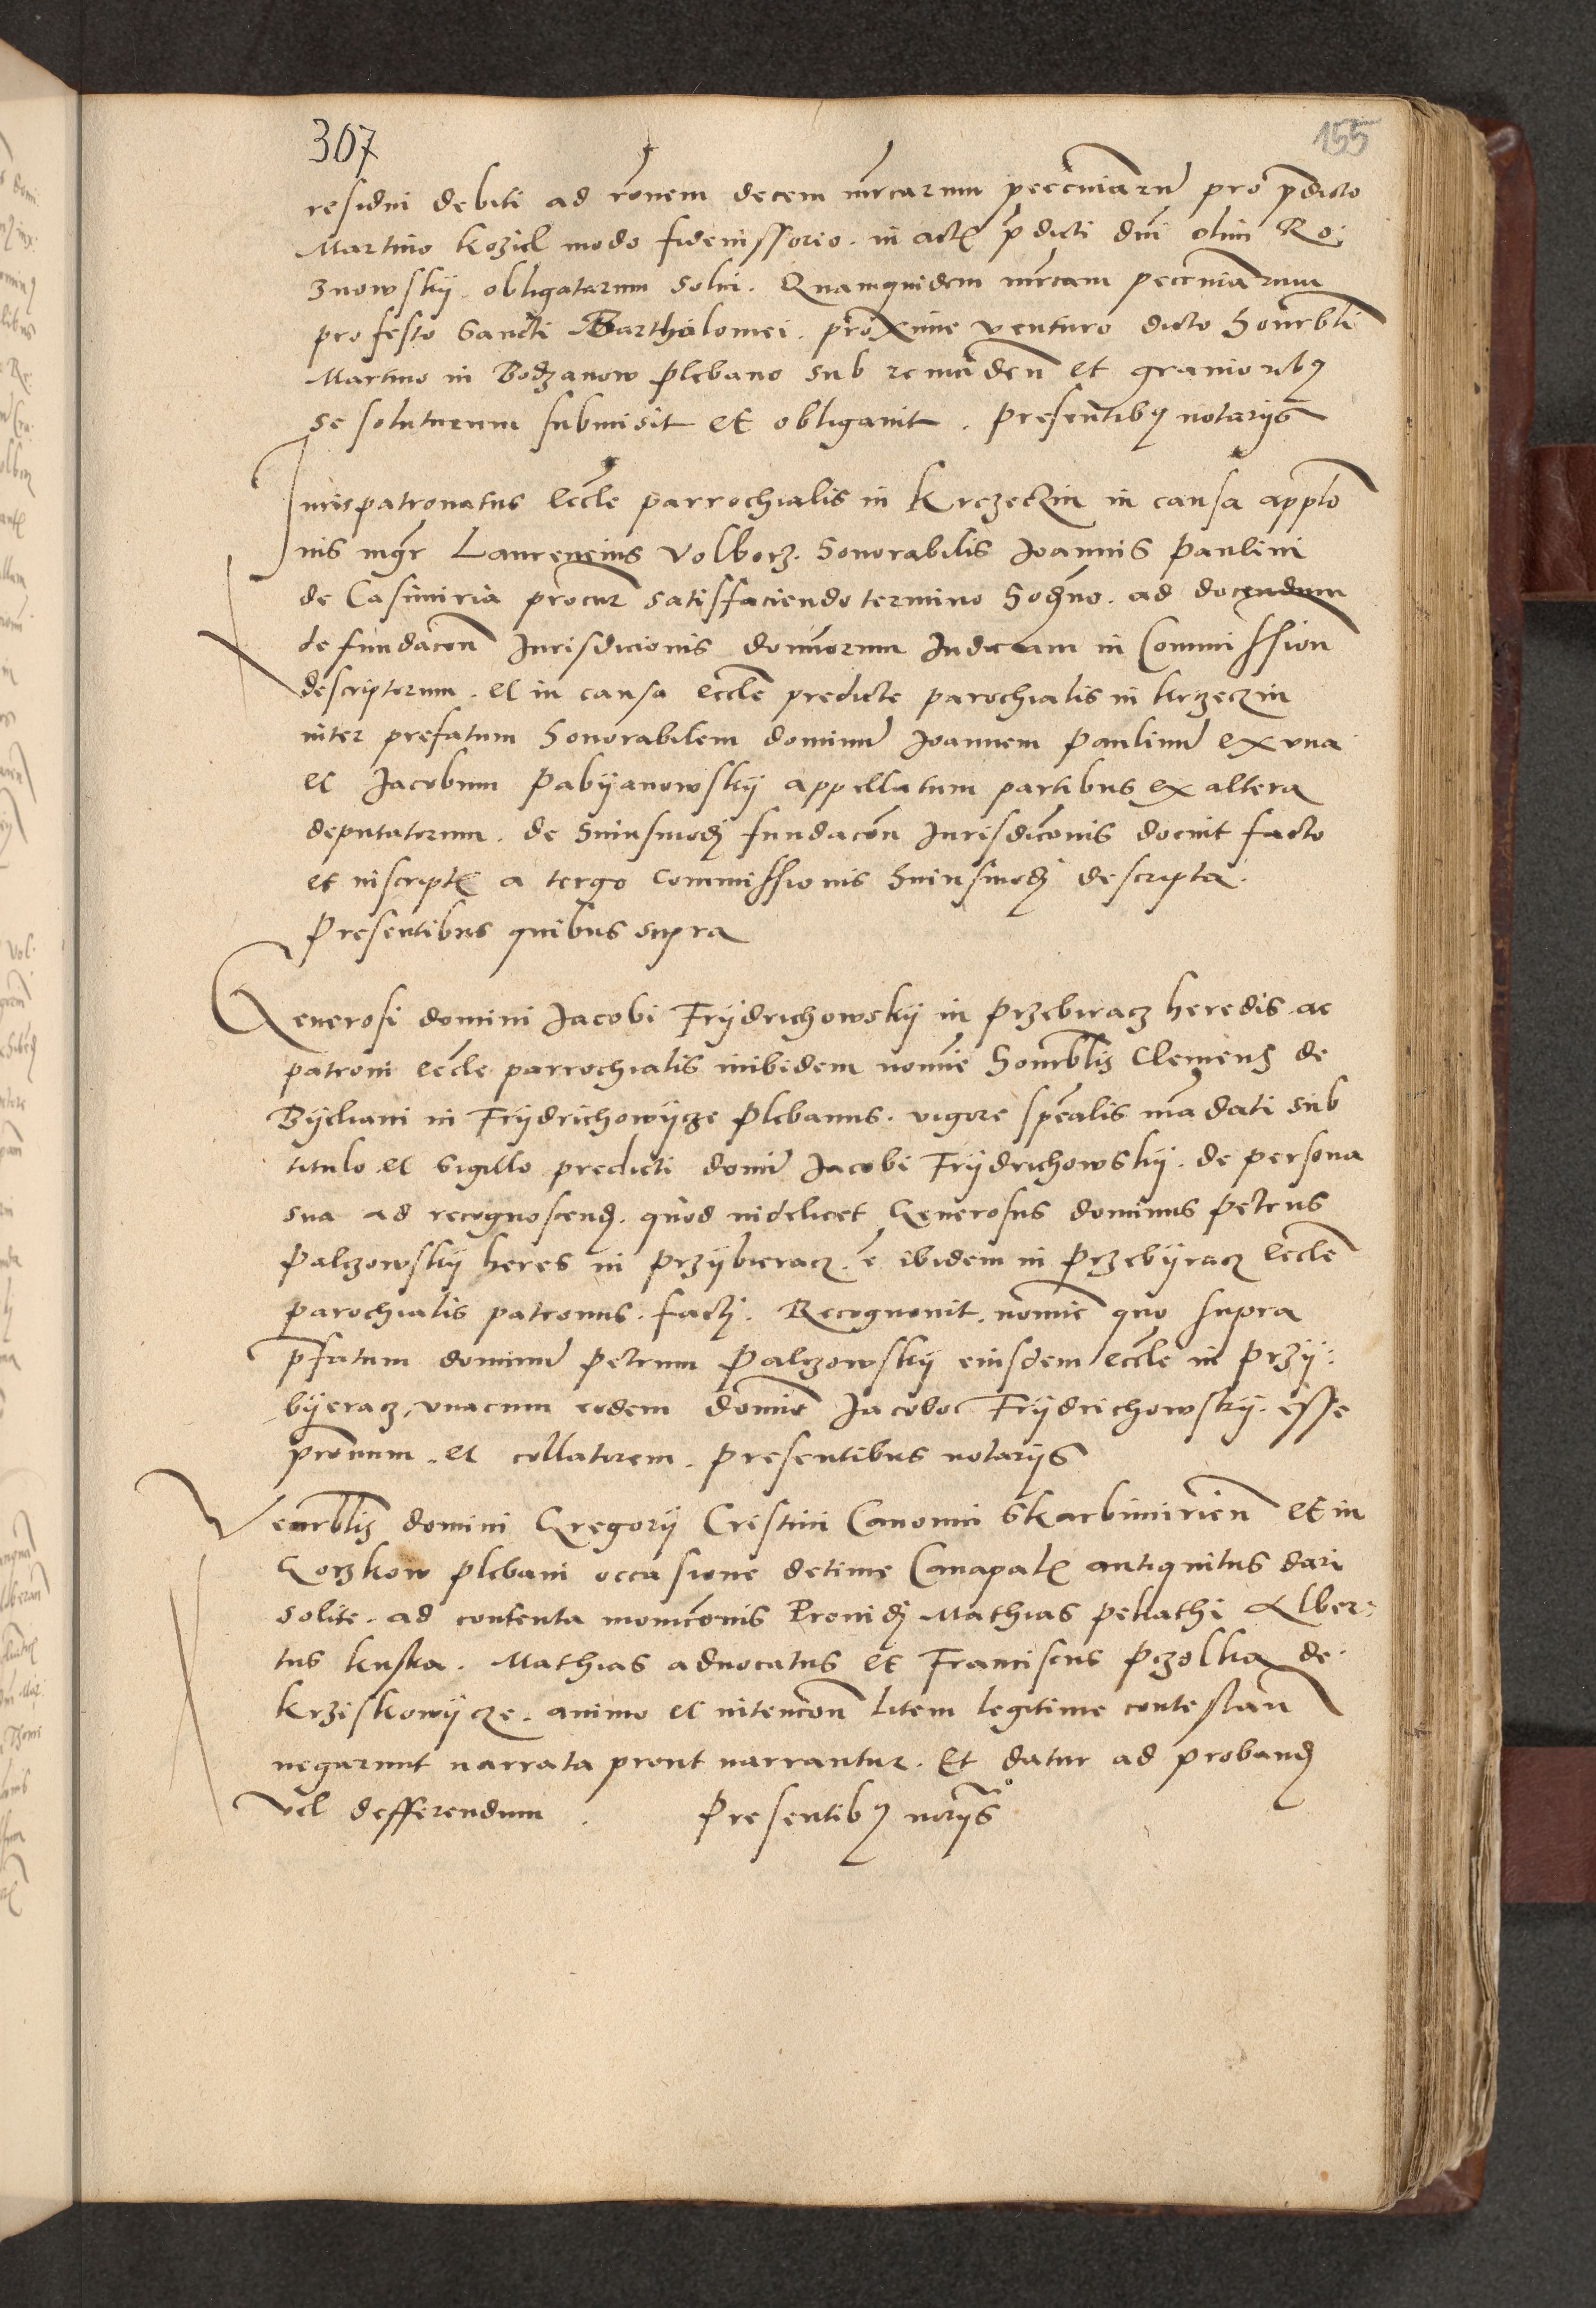 307
155
residui debiti ad ronem decem mrcarum pecuniarum pro pdicto
Martino Koziel modo fideiussorio. in actis pdicti dni olim Ro:
znowskÿ obligatarum solui. Quamquidem mrcam pecuniarum
pro festo Sancti Bartholomei. proxime venturo dicto Honrbli
Martino in Bodzanow Plebano sub remaden et grauioribus
se soluturum submisit et obligauit. Presentibus notarÿs
Jurispatronatus eccle parrochialis in Krzeczin in causa applo
nis mgr Laurencius Volborz. Honorabilis Joannis Paulini
de Casimiria procur satisfaciendo termino hodierno. ad docendum
de fundacon Jurisdicionis dominorum Judicum in Commission
descriptorum. et in causa eccle predicte parochialis in Krzeczin
inter prefatum Honorabilem dominum Joannem Paulinum ex vna
et Jacobum Pabÿanowskÿ appellatum partibus ex altera
deputatorum. de huiusmodi fundacon Jurisdiconis docuit facto
et inscriptis a tergo commissionis huiusmodi descripta.
Presentibus quibus supra
Generosi domini Jacobi Frÿdrichowskÿ in Przebiracz heredis ac
patroni eccle parrochialis inibidem nomine Honrblis Clemens de
in Frÿdrichowÿcze Plebanus. vigore spealis madati sub
titulo et sigillo predicti domini Jacobi Frÿdrichowskÿ. de persona
sua ad recognoscend. quod videlicet Generosus dominus Petrus
Palczowskÿ heres in Przÿbieracz. e ibidem in Przebÿracz eccle
parochialis patronus. facti. Recognouit. nomine quo supra
pfatum dominum Petrum Palczowskÿ eiusdem eccle in Przÿ:
bÿeracz. vnacum eodem domino Jacobo Frÿdrichowskÿ. esse
pronum. et collatorem. presentibus notarÿs
Venrblis domini Gregorÿ Cristini Canonici Skarbimirien et in
Gorzkow plebani occasione decime Canapalis antiquitus dari
solite. ad contenta moniconis Prouidi Mathias Alber:
tus Kuska. Mathias aduocatus et Franciscus Pczolka de
Krziskowÿcze. animo et intencon litem legitime contestan
negarunt narrata prout narrantur. Et datur ad proband
vel defferendum. Presentibus norÿs